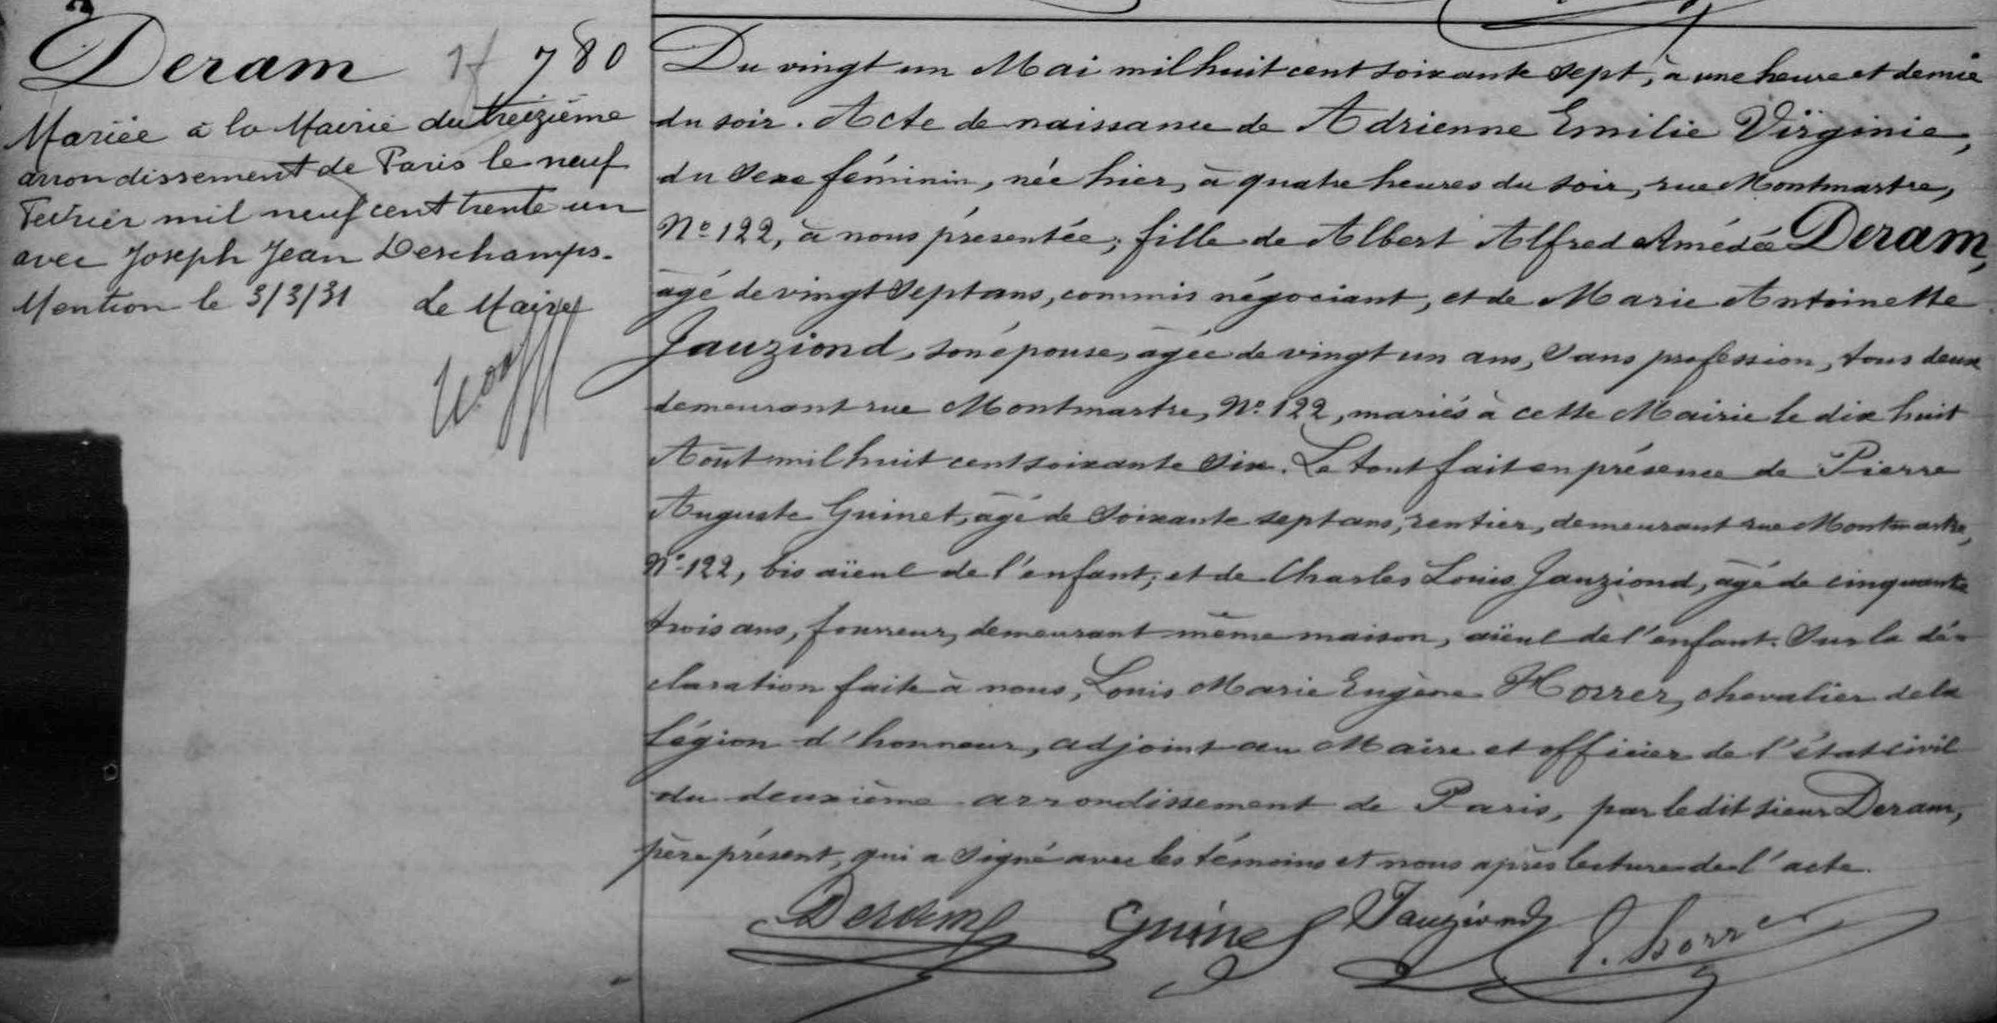 Deram 780
Mariée à la Mairie du treizième
arrondissement de Paris le neuf
Février mil neuf cent trente un
avec Joseph Jean Deschamps.
Mention le 3/3/31 Le Maire
Du vingt un Mai mil huit cent soixante sept, à une heure et demie
du soir. Acte de naissance de Adrienne Emilie Virginie,
du sexe féminin, née hier, à quatre heures du soir, rue Montmartre,
No 122, à nous présentée; fille de Albert Alfred Amédée Deram,
âgé de vingt sept ans, commis négociant, et de Marie Antoinette
Jauziond, son épouse, âgée de vingt un ans, sans profession, tous deux
demeurant rue Montmartre, No 122, mariés à cette Mairie le dix huit
Août mil huit cent soixante six. Le tout fait en présence de Pierre
Auguste Guinet, âgé de soixante sept ans, rentier, demeurant rue Montmartre,
No 122, bis aïeul de l'enfant; et de Charles Louis Jauziond, âgé de cinquante
trois ans, fourreur, demeurant même maison, aïeul de l'enfant. Sur la dé-
claration faite à nous, Louis Marie Eugène Horrer, chevalier de la
Légion d'honneur, adjoint au Maire et officier de l'état civil
du deuxième arrondissement de Paris, par ledit sieur Deram,
père présent, qui a signé avec les témoins et nous après lecture de l'acte.
Deram Guinet Jauziond E. Horrer